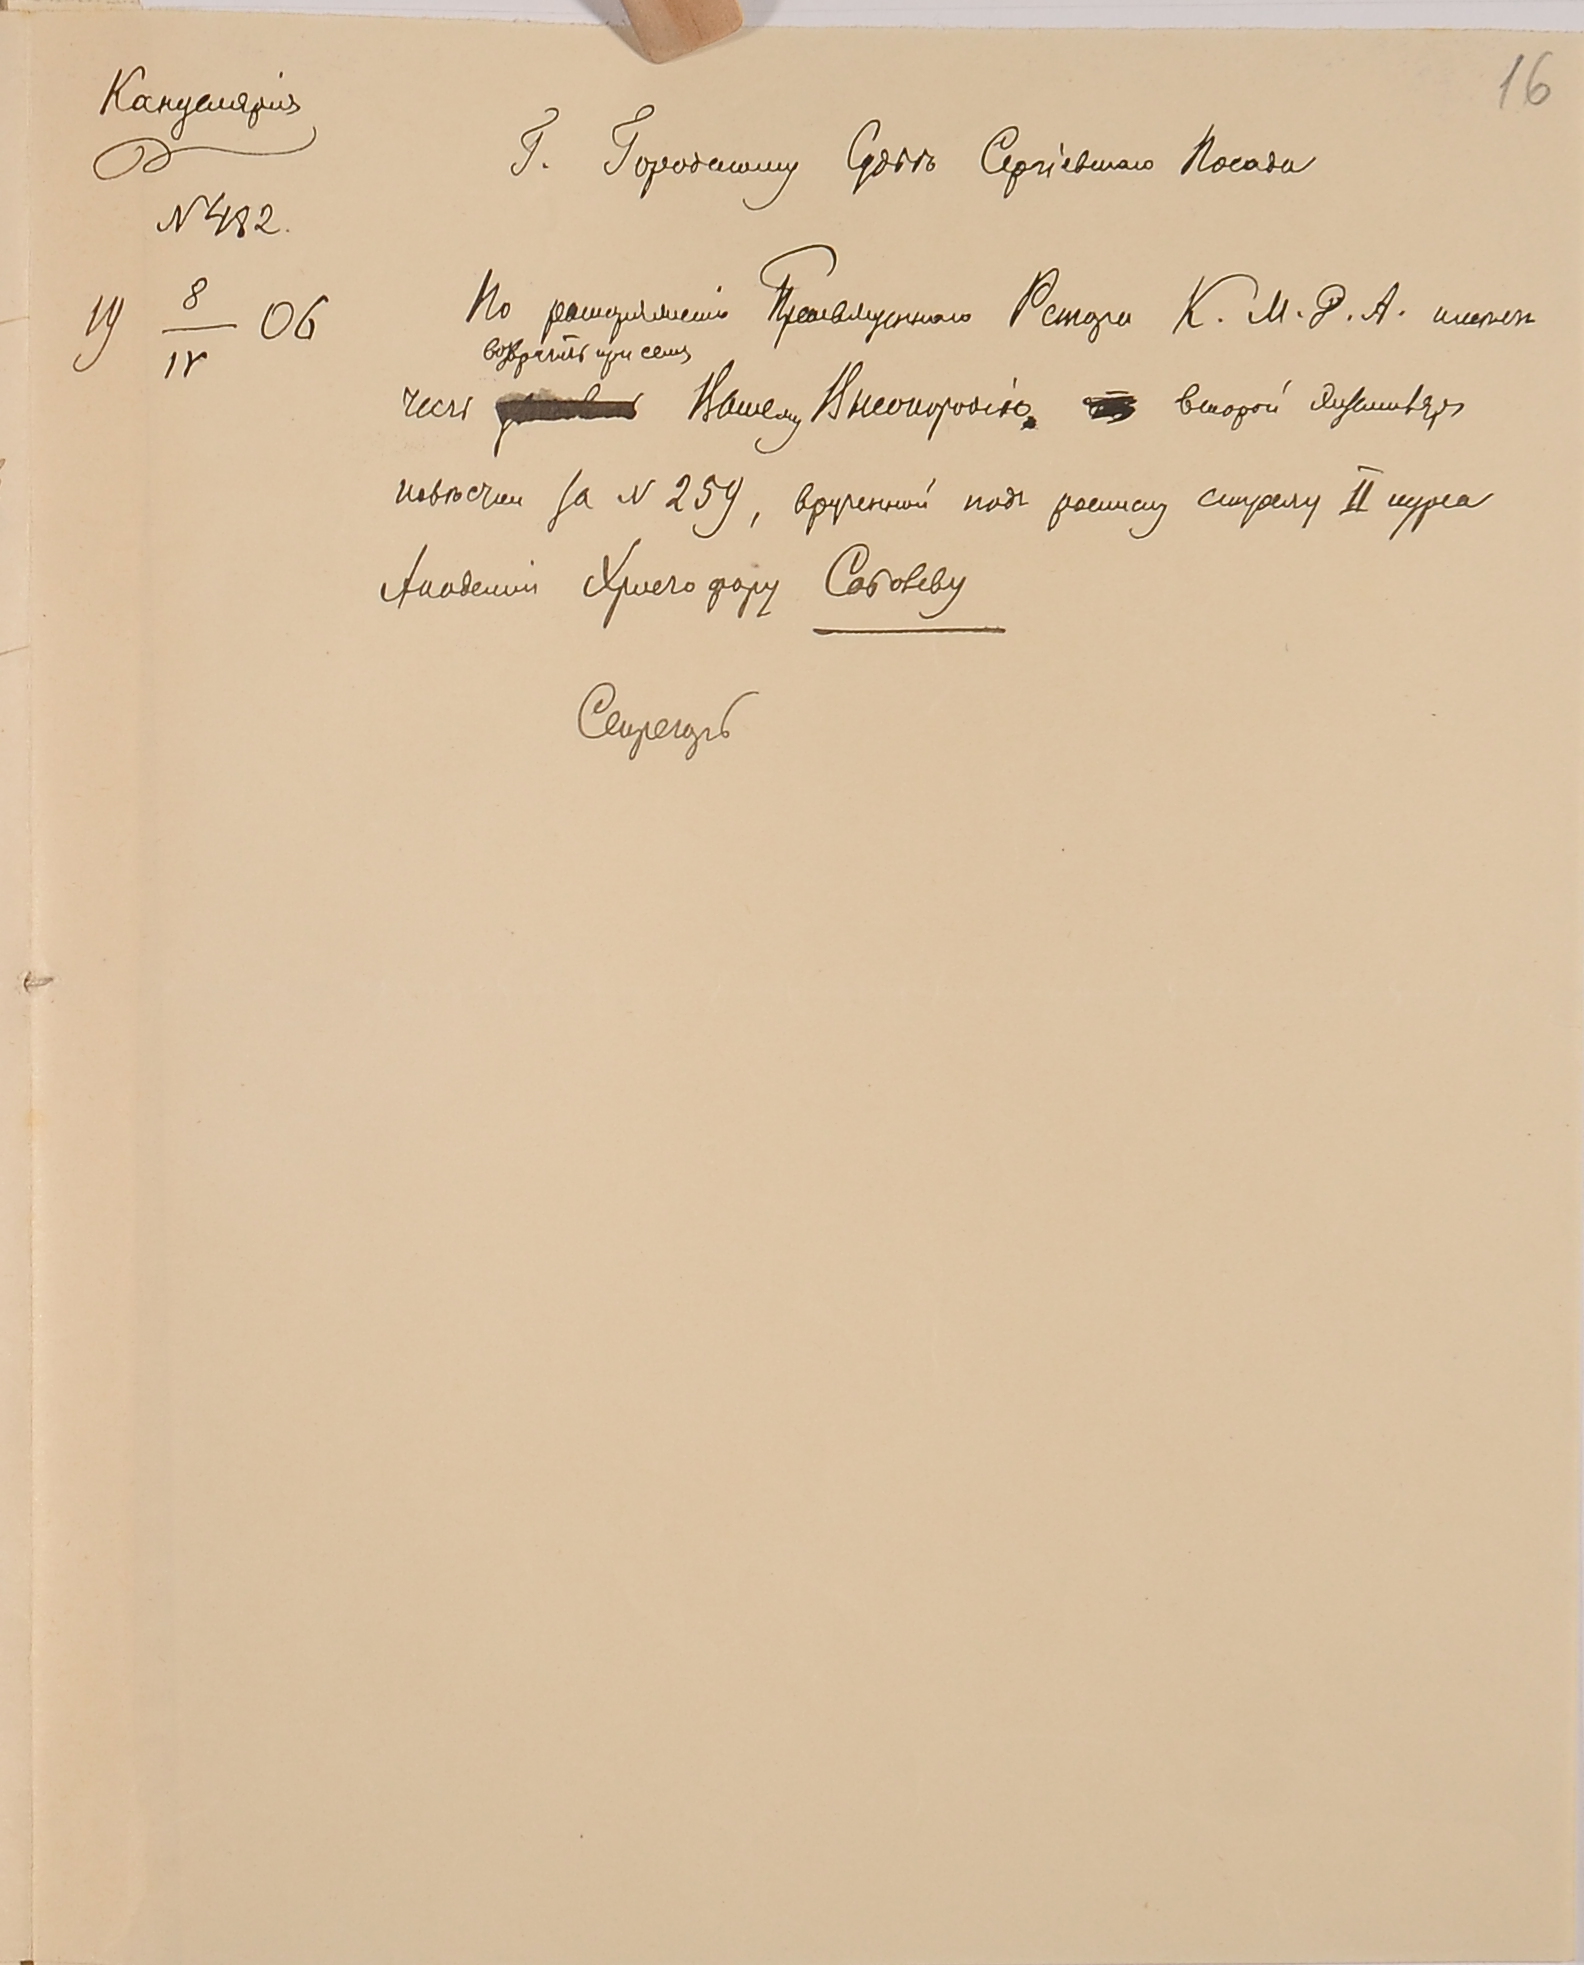 16
Канцелярія
N 482.
19 8/IV 06
Г. Городскому Судьѣ Сергіевскаго Посада
По распоряженію Преосвященнаго Ректора И. М. Д. А. имѣю
возвратить при семъ
честь Вашему Высокородію второй экземпляръ
повѣстки за N 259, врученной подъ росписку студенту II курса
Академіи Христофору Саботеву
Секретарь